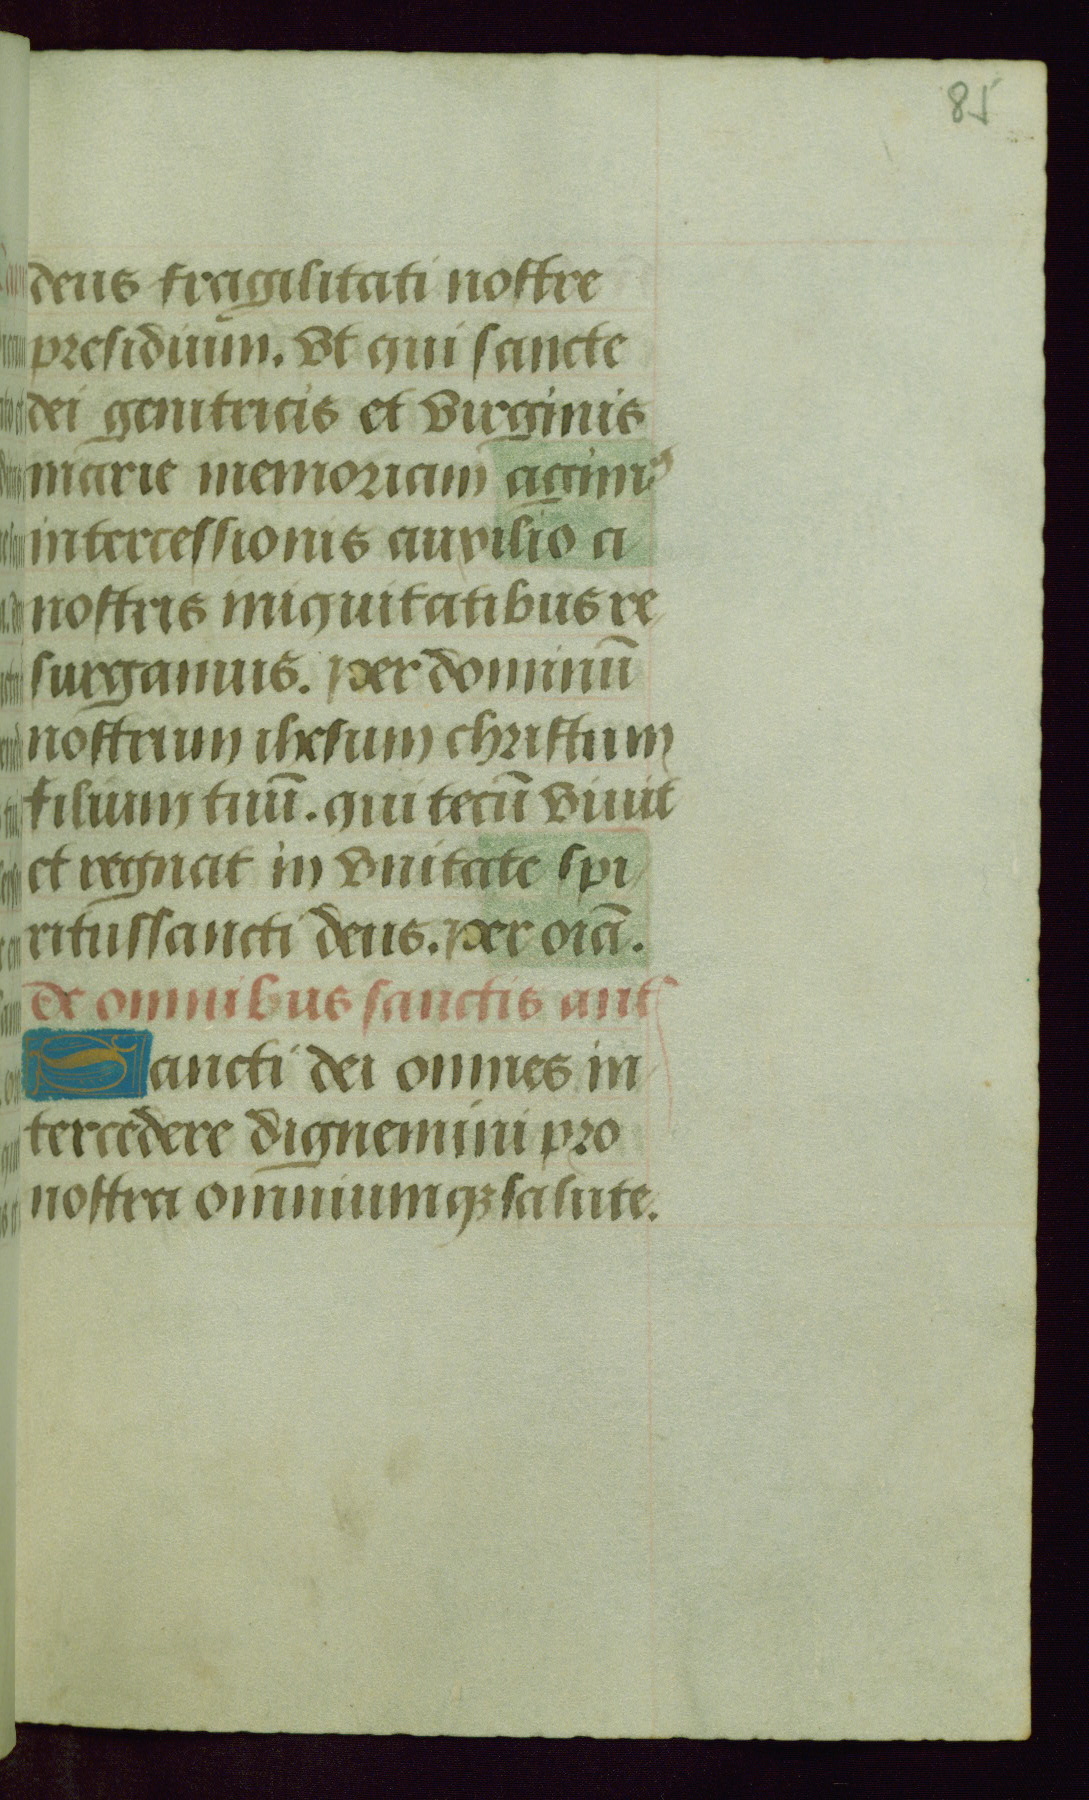 85
deus fragilitati nostre
presidium. Vt qui sancte
dei genitricis et virginis
marie memoriam agimꝰ
intercessionis auxilio a
nostris iniquitatibus re
surgamus. per dominū
nostrum ihesum christum
filium tuū. qui tecū viuit
et regnat in vnitate spi
ritussancti deus. per oīa.
de omnibus sanctis ant
Sancti dei omnes in
tercedere dignemini pro
nostra omniumqꝫ salute.